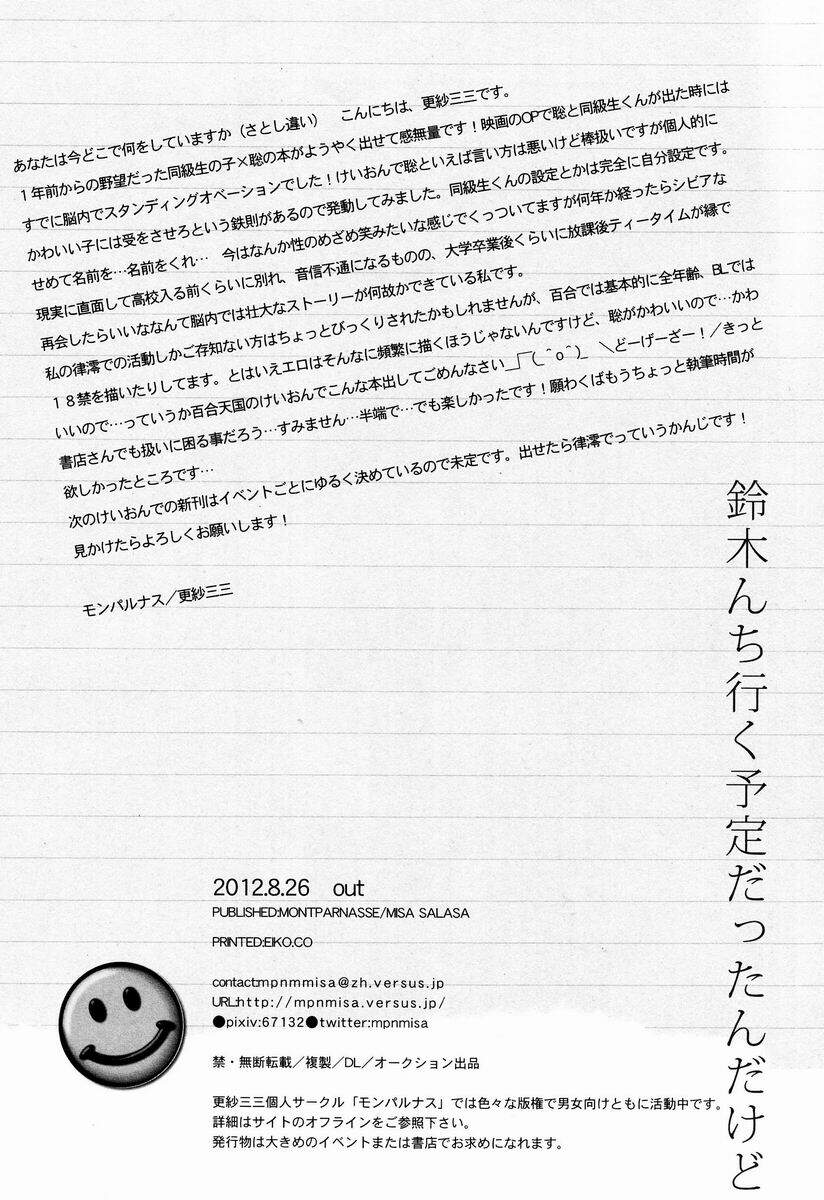 あなたは今どこで何をしていますか（さとし違い）　こんにちは、更紗三三です。
１年前からの野望だった同級生の子×聡の本がようやく出せて感無量です！映画のOPで聡と同級生くんが出た時には
すでに脳内でスタンディングオベーションでした！けいおんで聡といえば言い方は悪いけど棒扱いですが個人的に
かわいい子には受をさせろという鉄則があるので発動してみました。同級生くんの設定とかは完全に自分設定です。
せめて名前を…名前をくれ…　今はなんか性のめざめ笑みたいな感じでくっついてますが何年か経ったらシビアな
現実に直面して高校入る前くらいに別れ、音信不通になるものの、大学卒業後くらいに放課後ティータイムが縁で
再会したらいいななんて脳内では壮大なストーリーが何故かできている私です。
私の律澪での活動しかご存知ない方はちょっとびっくりされたかもしれませんが、百合では基本的に全年齢、BLでは
１８禁を描いたりしてます。とはいえエロはそんなに頻繁に描くほうじゃないんですけど、聡がかわいいので…かわ
いいので…っていうか百合天国のけいおんでこんな本出してごめんなさい_┌(_＾o＾)_　＼どーげーざー！／きっと
書店さんでも扱いに困る事だろう…すみません…半端で…でも楽しかったです！願わくばもうちょっと執筆時間が
欲しかったところです…
次のけいおんでの新刊はイベントごとにゆるく決めているので未定です。出せたら律澪でっていうかんじです！
見かけたらよろしくお願いします！
モンパルナス／更紗三三
鈴木んち行く予定だったんだけど
2012.8.26　out
PUBLISHED:MONTPARNASSE/MISA SALASA
PRINTED:EIKO.CO
contact:mpnmmisa@zh.versus.jp
URL:http://mpnmisa.versus.jp/
●pixiv:67132●twitter:mpnmisa
禁・無断転載／複製／DL／オークション出品
更紗三三個人サークル「モンパルナス」では色々な版権で男女向けともに活動中です。
詳細はサイトのオフラインをご参照下さい。
発行物は大きめのイベントまたは書店でお求めになれます。